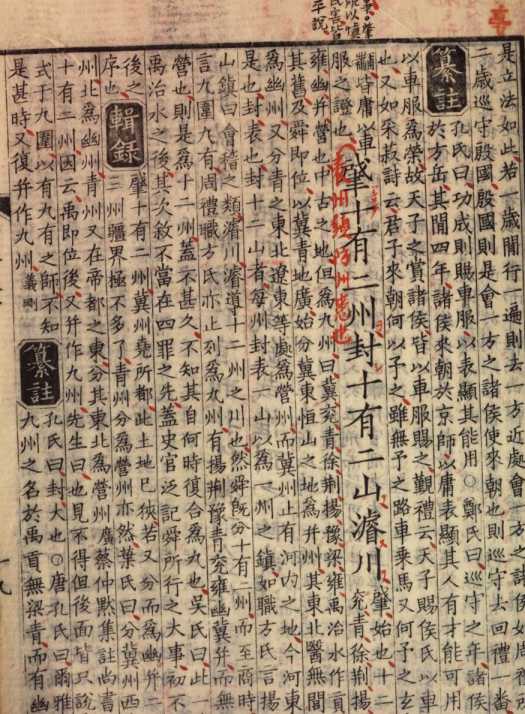 是立法如此若一歲間行一遍則去一方近處會一方之諸侯如周禮
二歲巡守殷國殷國則是會一方之諸侯使來朝也則巡守去回禮一番
纂註 孔氏曰功成則賜車服以表顯其能用○鄭氏曰巡守之年諸侯
於方岳其間四年諸侯來朝於京師以庸表顯其人有才能可用
以車服為榮故天子之賞諸侯皆以車服賜之覲禮云天子賜侯氏以車
也又如采菽詩云君子來朝何以予之雖無予之路車乘馬又何予之玄
皆庸以車
服之證也
肇十有二州封十有二山濬川
肇始也十二
兗青徐荊揚
雍幽并營也中古之地但為九州曰冀兗青徐荊揚豫梁雍禹治水作貢
其舊及舜即位以冀青地廣始分冀東恒山之地為并州其東北醫無閭
為幽州又分青之東北遼東等處為營州而冀州止有河内之地今河東
是也封表也封十二山者每州封表一山以為一州之鎮如職方氏言揚
山鎮曰會稽之類濬川濬導十二州之川也然舜既分十有二州而至商時
言九圍九有周禮職方氏亦止列為九州有揚荊豫青兗雍幽冀并而無
營也則是為十二州蓋不甚久不知其自何時復合為九也吳氏曰此一
禹治水之後其次敘不當在四罪之先蓋史官泛記舜所行之大事初不
後之
序也
輯録 肇十有二州冀州堯所都此土地已狹若又分而為幽并二
三州疆界極不多了青州分為營州亦然葉氏曰分冀州西
州北為幽州青州又在帝都之東分其東北為營州廣蔡仲默集註尚書
十有二州因云禹即位後又并作九州先生曰也見不得但後面皆只說
式于九圍以有九有之師不知
是甚時又復并作九州義剛
纂註 孔氏曰封大也○唐孔氏曰爾雅
九州之名於禹貢無梁青而有幽